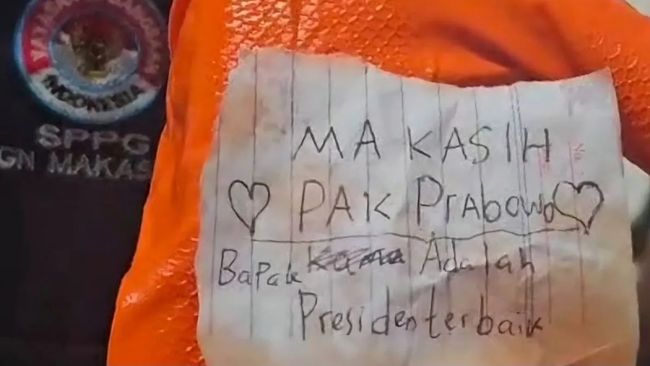 INDONESIA
SPPG
GN MAKAS
MA KASIH
PAK PRAbowo
Bapak Adalah
Presiden terbaik